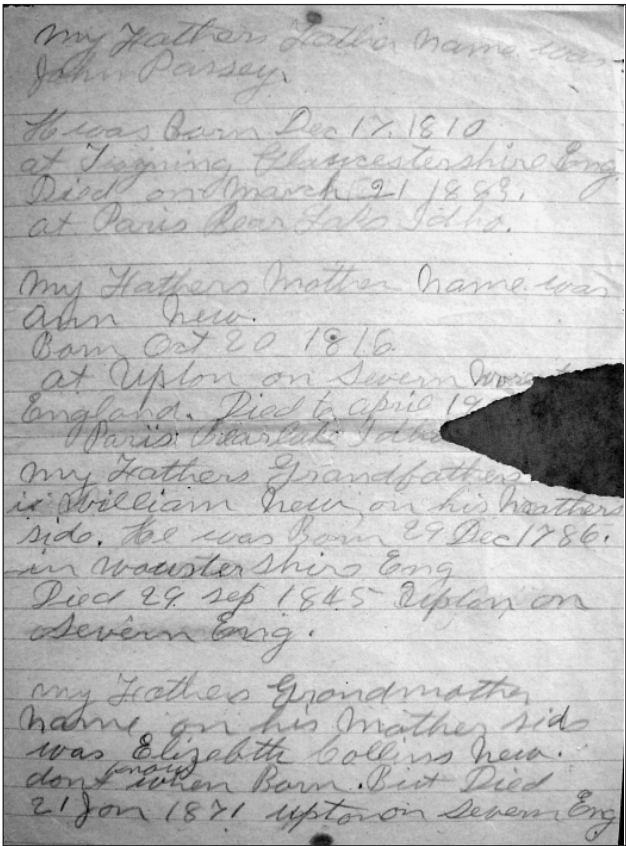 My Fathers Father Name was
John Parsey.
He was Born Dec 17. 1810
at Twyning Glaucestershire Eng
Died on March 21 1883.
at Paris Bear Lake Idho.
My Fathers Mother Name was
Ann New.
Born Oct 20 1816
at Upton on Severn
England. Died April 19
Paris Bearlake Idho
My Fathers Grandfathers
is William New on his Mothers
side. He was Born 29 Dec 1786.
in wousterShire Eng
Died 29 Sep 1845 Upton on
Severn Eng.
My Fathers Grandmother
Name on his Mother side
was Elizabeth Collins New.
dont know when Born. But Died
21 Jan 1871 upton on Severn Eng